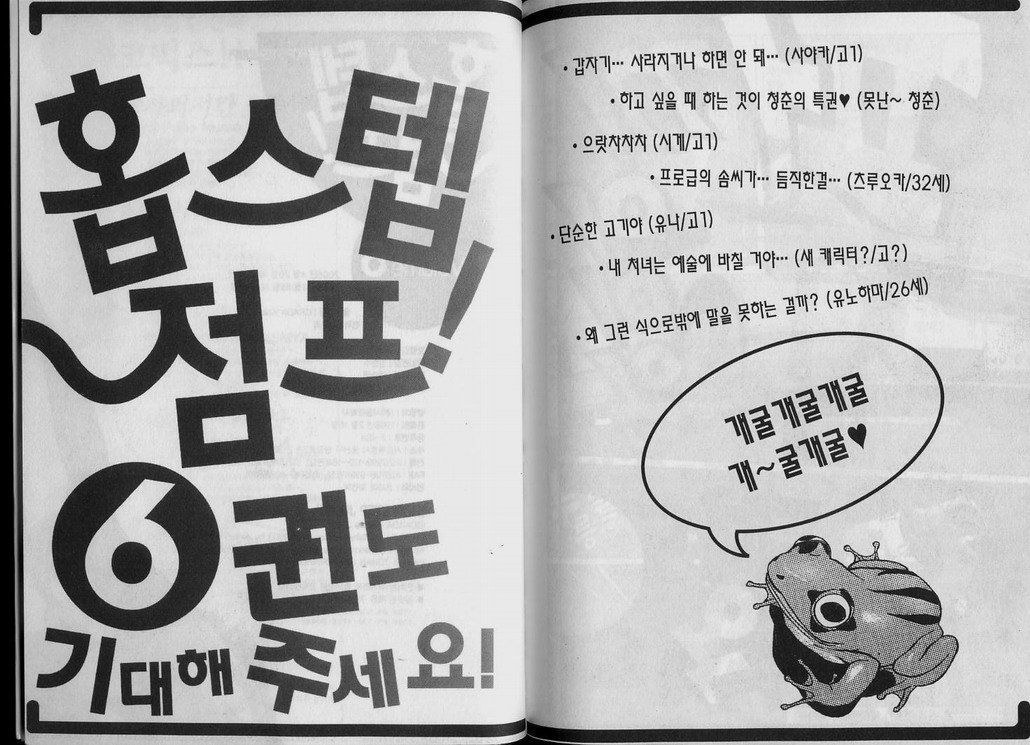 홉 스텝
점프!
6권도
기대해 주세요!
• 갑자기… 사라지거나 하면 안 돼… (사야카/고1)
• 하고 싶을 때 하는 것이 청춘의 특권♥ (못난~ 청춘)
• 으랏차차차 (시계/고1)
• 프로급의 솜씨가… 듬직한걸… (츠루오카/32세)
• 단순한 고기야 (유나/고1)
• 내 처녀는 예술에 바칠 거야… (새 캐릭터?/고?)
• 왜 그런 식으로밖에 말을 못하는 걸까? (유노하마/26세)
개굴개굴개굴
개~굴개굴♥